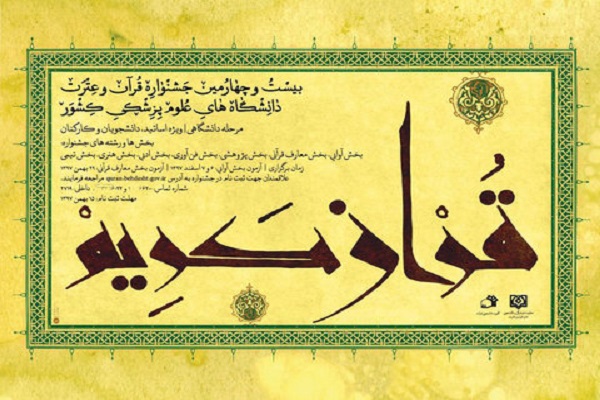 بیست و چهارمین جشنواره قرآن و عترت
دانشگاه های علوم پزشکی کشور
مرحله دانشگاهی | ویژه اساتید، دانشجویان و کارکنان
بخش ها و رشته های جشنواره:
بخش آوایی، بخش معارف قرآنی، بخش پژوهشی، بخش فن آوری، بخش ادبی، بخش هنری، بخش تیمی
زمان برگزاری | آزمون بخش آوایی: ۶ و ۷ اسفند ۱۳۹۷ | آزمون بخش معارف قرآنی: ۲۹ بهمن ۱۳۹۷
علاقمندان جهت ثبت نام در جشنواره به آدرس quran.behdasht.gov.ir مراجعه فرمایند.
شماره تماس: داخل:
مهلت ثبت نام: ۱۵ بهمن ۱۳۹۷
قرآن کریم